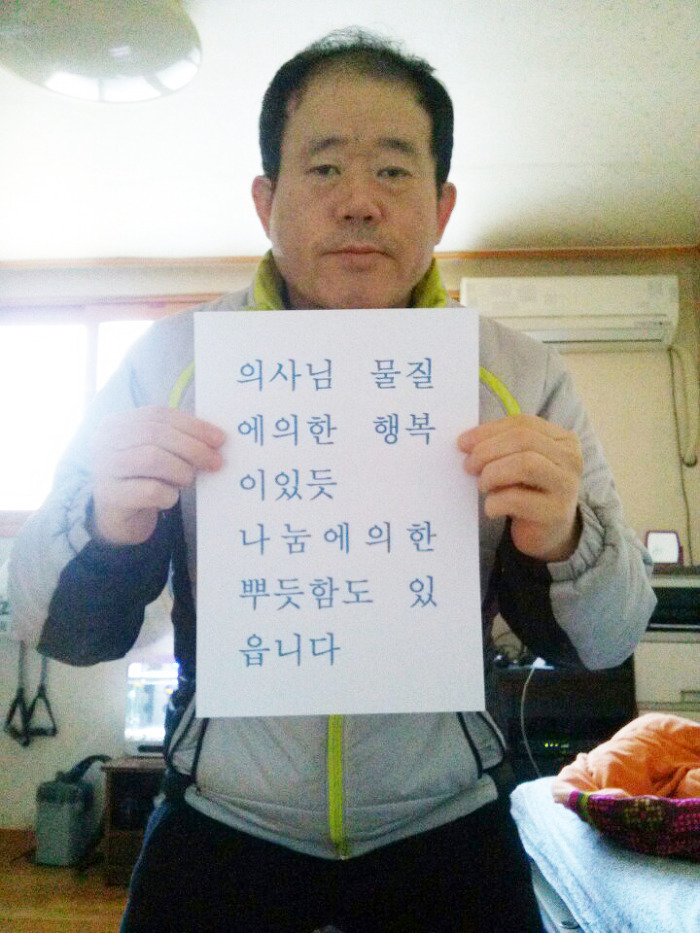 의사님 물질
에의한 행복
이있듯
나눔에의한
뿌듯함도 있
읍니다